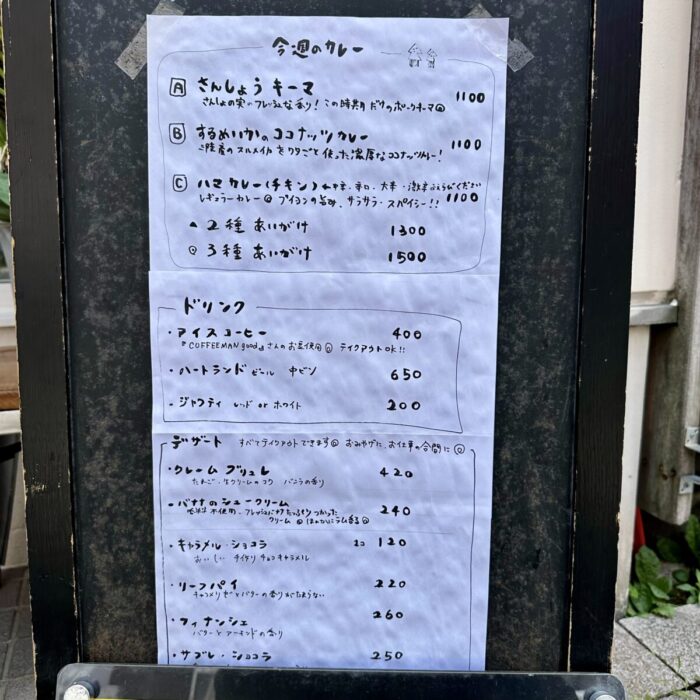 今週のカレー
A さんしょうキーマ 1100
さんしょの実のフレッシュな香り！この時期だけのポークキーマ
B するめいかのココナッツカレー 1100
三陸産のスルメイカをワタごと使った濃厚なココナッツカレー！
C ハマカレー(チキン) 中辛・辛口・大辛・激辛よりえらびください
レギュラーカレー ブイヨンの旨み、サラサラ・スパイシー！！ 1100
▲ 2種 あいがけ 1300
◎ 3種 あいがけ 1500
ドリンク
・アイスコーヒー 400
『COFFEEMAN good』さんのお豆使用 テイクアウトOK!!
・ハートランド ビール 中ビン 650
・ジャクティ レッド or ホワイト 200
デザート すべてテイクアウトできます おみやげに、お仕事の合間に
・クレームブリュレ 420
たまご・生クリームのコク バニラの香り
・バナナのシュークリーム 240
不使用、フレッシュバナナたっぷりつかった
クリーム ほのかにラム香る
・キャラメル・ショコラ 2コ 120
おいしい 手作りチョコキャラメル
・リーフパイ 220
バターの香りがたまらない
・フィナンシェ 260
バターとアーモンドの香り
・サブレ・ショコラ 250